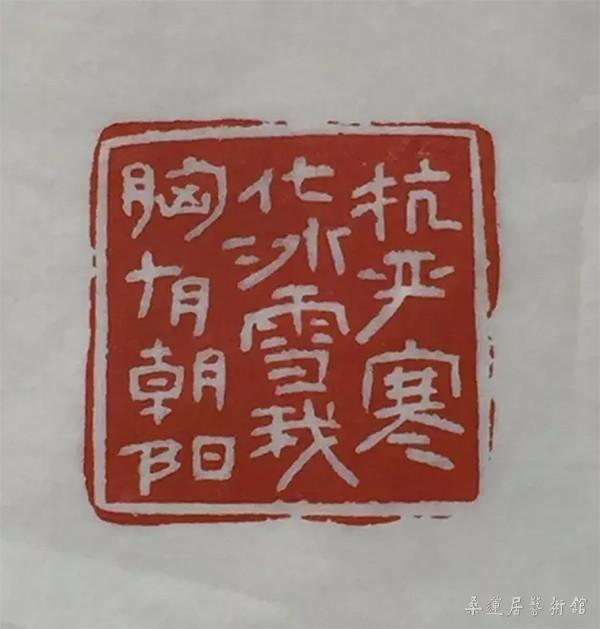 抗严寒
化冰雪我
胸有朝阳
桑莲居艺術館